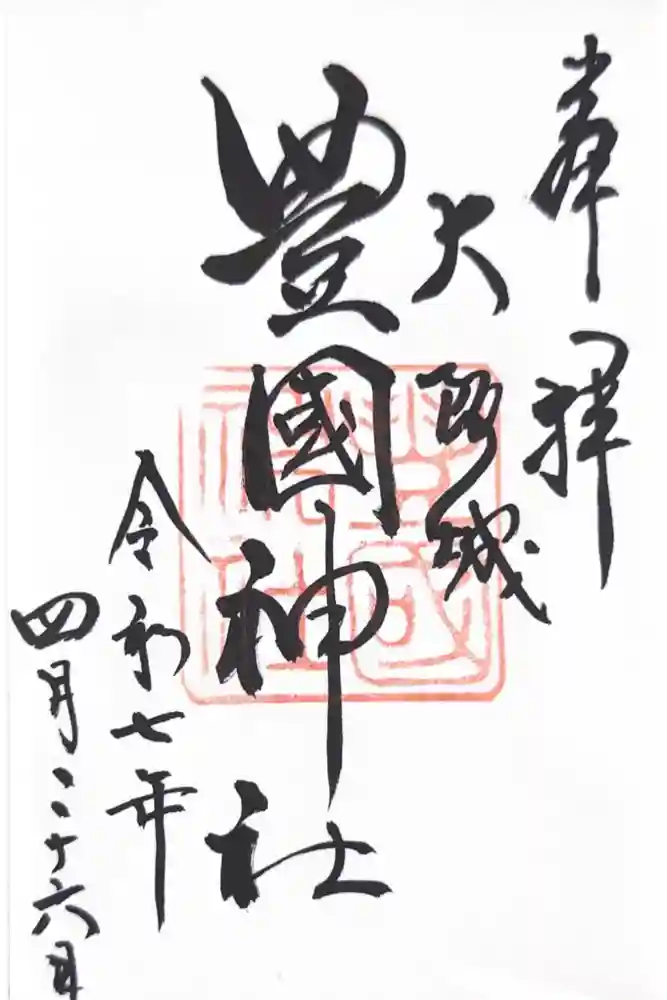 奉拝
大阪城
豊國神社
令和七年
四月二十六日
豊國
神社